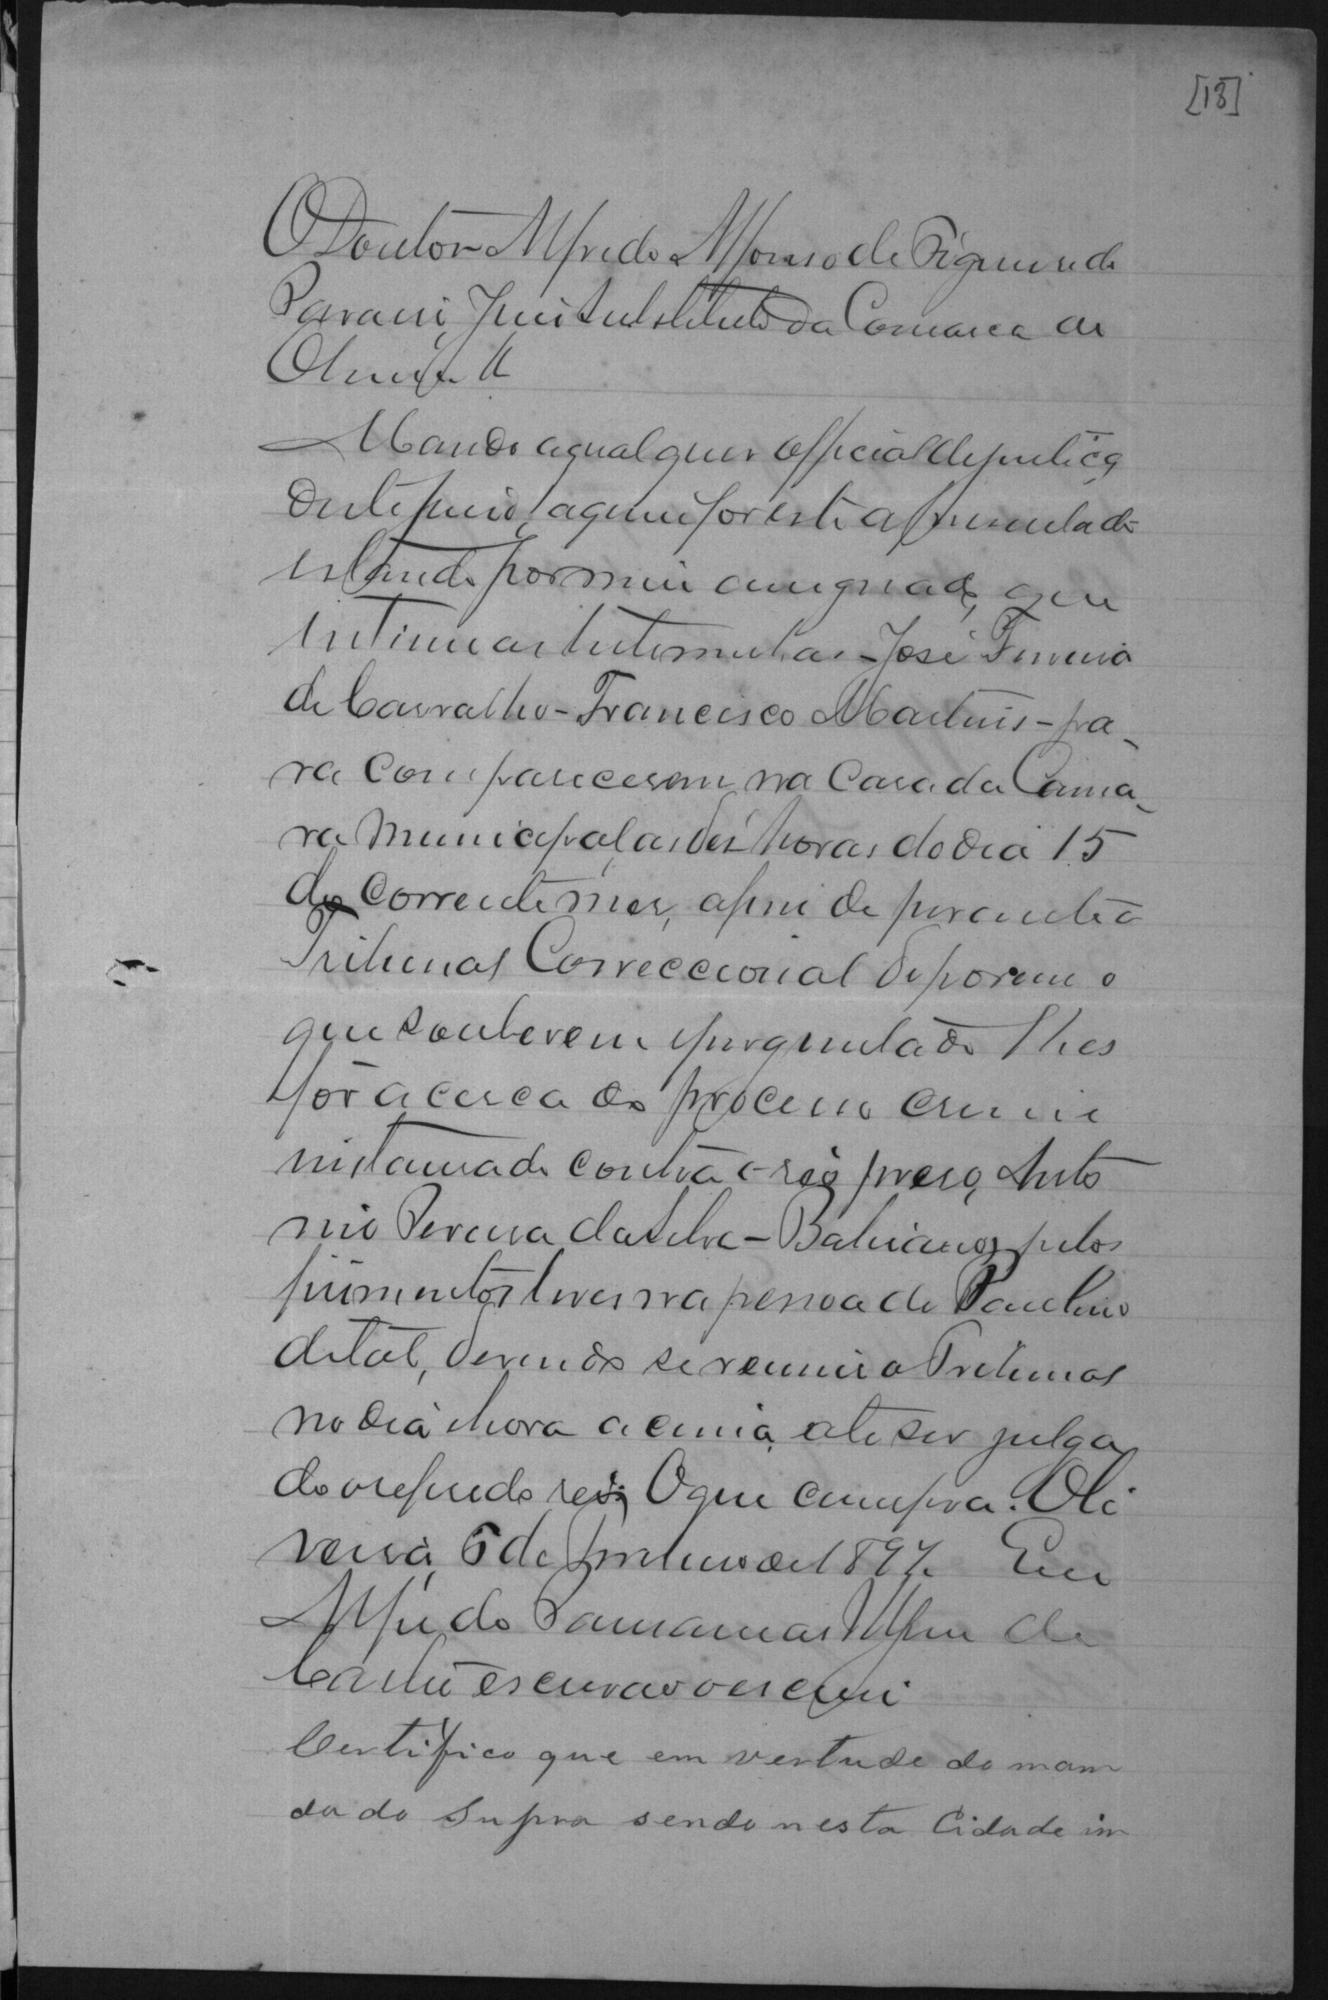 [18]
O Doutor Alfredo Affonso de Figueiredo
Parani, Juiz Substituto da Comarca de
Oliveira &
Mando a qualquer official de justiça
deste juizo, a quem for este apresentado
estando por mim assignado, que
intime as testemunhas - José Ferreira
de Carvalho - Francisco Martins - pa-
ra comparecerem na Casa da Cama-
ra Municipal, as dés horas do dia 15
do corrente mez, afim de perante o
Tribunal Correccional deporem o
que souberem e perguntado lhes
fôr acerca do processo crime
instaurado contra o reo preso, Anto
nio Pereira da Silva - Bahiano, pelos
ferimentos leves na pessoa de Paulino
de tal, devendo se reunir o Tribunal
no dia e hora acima, ate ser julga
do o referido reo; O que cumpra. Oli
veira, 6 de de 1897. Eu
Alfredo de
Castro escrivão o escrevi
Certifico que em vertude do man
dado supra sendo nesta Cidade in